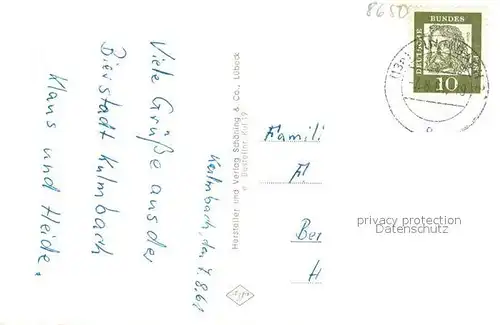 8650
Kulmbach, den 7.8.61
Viele Grüße aus der
Bierstadt Kulmbach
Klaus und Heide.
Hersteller und Verlag Schöning & Co., Lübeck
DEUTSCHE BUNDES
10
Famili
Fl
Ber
H
privacy protection
Datenschutz